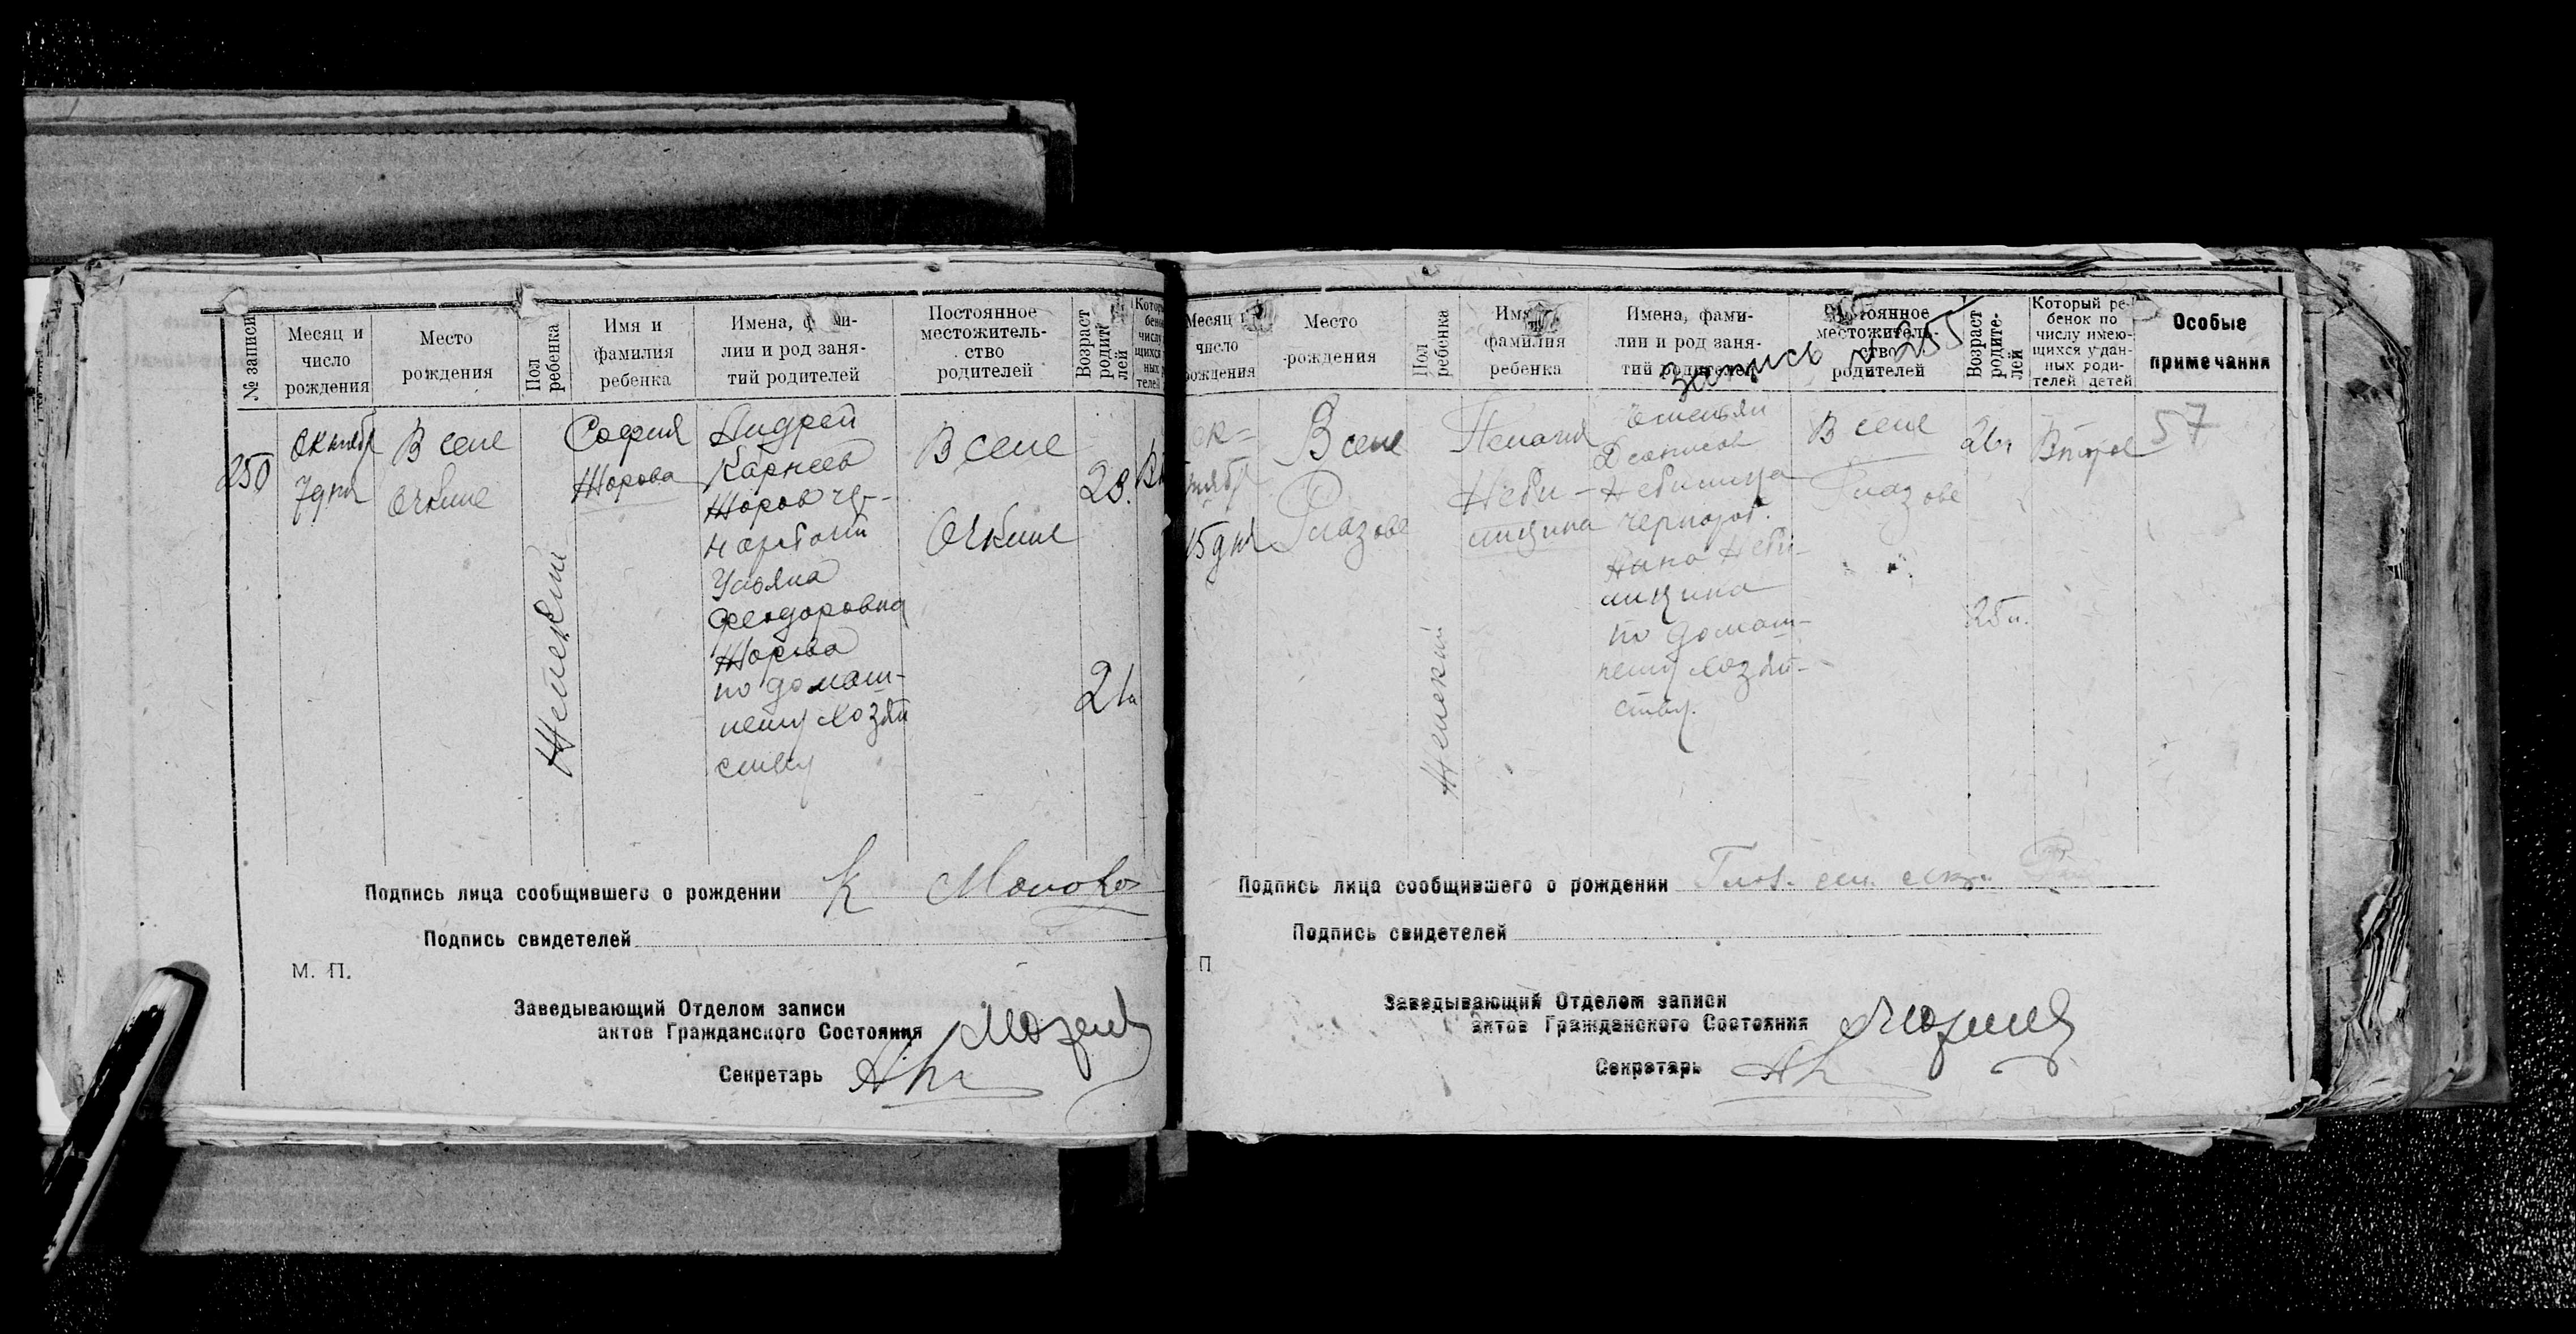 № записи
Месяц и
число
рождения
Место
рождения
Пол
ребенка
Имя и
фамилия
ребенка
Имена, фами-
лии и род заня-
тий родителей
Постоянное
местожитель-
ство
родителей
Возраст
родите-
лей
250
октябр
7 дня
В селе
Очкине
Женский
София
Жорова
Андрей
Карнеев
Жоров че-
Ульяна
Феодоровна
Жорова
по домаш-
нему хозяй
ству
В селе
Очкине
28.
21
Подпись лица сообщившего о рождении К
Подпись свидетелей
М. П.
Заведывающий Отделом записи
актов Гражданского Состояния
Секретарь
Месяц и
число
рождения
Место
рождения
Пол
ребенка
Имя и
фамилия
ребенка
Имена, фами-
лии и род заня-
тий родителей
Постоянное
местожитель-
ство
родителей
Возраст
родите-
лей
Который ре-
бенок по
числу имею-
щихся у дан-
ных роди-
телей детей
Особые
примечания
запись № 255
ок-
тябр
15 дня
В селе
Глазове
Женский
Пелагия
Неби-
Денисов
чернораб.
Анна Неби-
по домаш-
нему хозяй-
ству.
В селе
Глазове
26л
25л.
Второе
57
Подпись лица сообщившего о рождении
Подпись свидетелей
П
Заведывающий Отделом записи
актов Гражданского Состояния
Секретарь